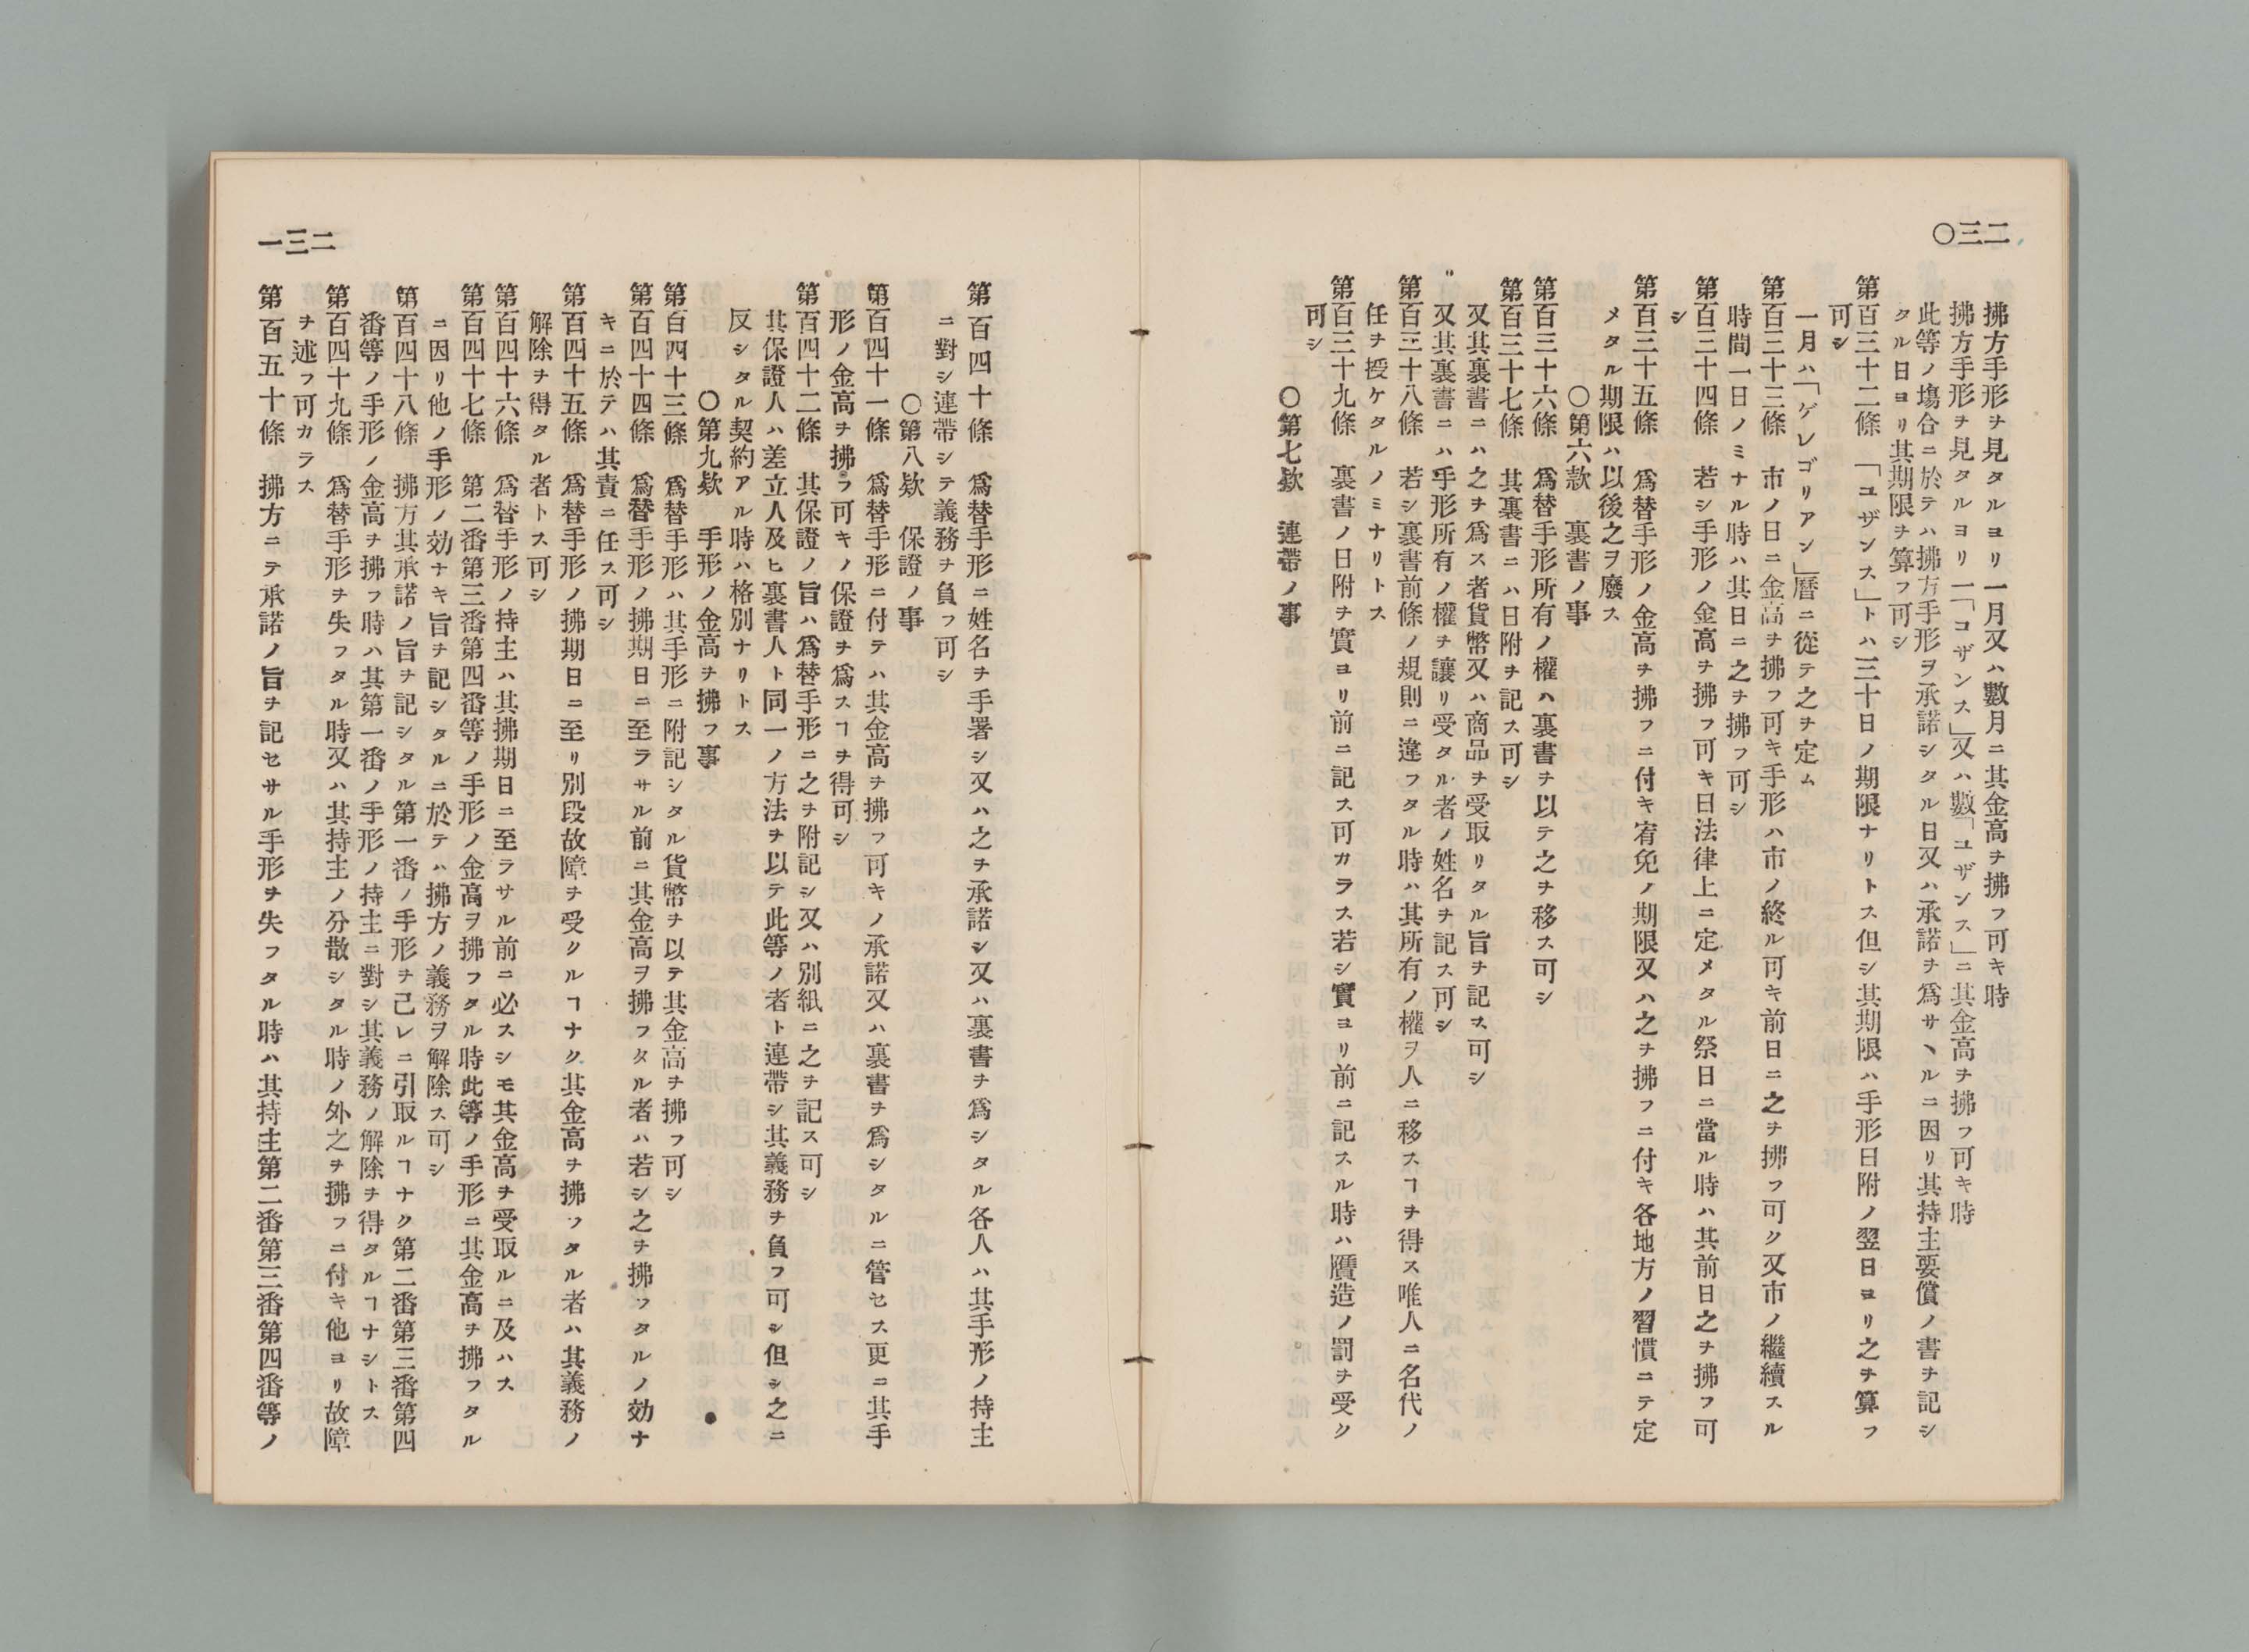 二三〇
拂方手形ヲ見タルヨリ一月又ハ數月ニ其金高ヲ拂フ可キ時
拂方手形ヲ見タルヨリ一「コザンス」又ハ數「ユザンス」ニ其金高ヲ拂フ可キ時
此等ノ塲合ニ於テハ拂方手形ヲ承諾シタル日又ハ承諾ヲ爲サヽルニ因リ其持主要償ノ書ヲ記シ
タル日ヨリ其期限ヲ算フ可シ
第百三十二條　「ユザンス」トハ三十日ノ期限ナリトス但シ其期限ハ手形日附ノ翌日ヨリ之ヲ算フ
可シ
一月ハ「ゲレゴリアン」曆ニ從テ之ヲ定ム
第百三十三條　市ノ日ニ金高ヲ拂フ可キ手形ハ市ノ終ル可キ前日ニ之ヲ拂フ可ク又市ノ繼續スル
時間一日ノミナル時ハ其日ニ之ヲ拂フ可シ
第百三十四條　若シ手形ノ金高ヲ拂フ可キ日法律上ニ定メタル祭日ニ當ル時ハ其前日之ヲ拂フ可
シ
第百三十五條　爲替手形ノ金高ヲ拂フニ付キ宥免ノ期限又ハ之ヲ拂フニ付キ各地方ノ習慣ニテ定
メタル期限ハ以後之ヲ廢ス
〇第六款　裏書ノ事
第百三十六條　爲替手形所有ノ權ハ裏書ヲ以テ之ヲ移ス可シ
第百三十七條　其裏書ニハ日附ヲ記ス可シ
又其裏書ニハ之ヲ爲ス者貨幣又ハ商品ヲ受取リタル旨ヲ記ス可シ
又其裏書ニハ手形所有ノ權ヲ讓リ受タル者ノ姓名ヲ記ス可シ
第百三十八條　若シ裏書前條ノ規則ニ違フタル時ハ其所有ノ權ヲ人ニ移スヿヲ得ス唯人ニ名代ノ
任ヲ授ケタルノミナリトス
第百三十九條　裏書ノ日附ヲ實ヨリ前ニ記ス可カラス若シ實ヨリ前ニ記スル時ハ贋造ノ罰ヲ受ク
可シ
〇第七欵　連帶ノ事
二三一
第百四十條　爲替手形ニ姓名ヲ手署シ又ハ之ヲ承諾シ又ハ裏書ヲ爲シタル各人ハ其手形ノ持主
ニ對シ連帶シテ義務ヲ負フ可シ
〇第八欵　保證ノ事
第百四十一條　爲替手形ニ付テハ其金高ヲ拂フ可キノ承諾又ハ裏書ヲ爲シタルニ管セス更ニ其手
形ノ金高ヲ拂フ可キノ保證ヲ爲スヿヲ得可シ
第百四十二條　其保證ノ旨ハ爲替手形ニ之ヲ附記シ又ハ別紙ニ之ヲ記ス可シ
其保證人ハ差立人及ヒ裏書人ト同一ノ方法ヲ以テ此等ノ者ト連帶シ其義務ヲ負フ可シ但シ之ニ
反シタル契約アル時ハ格別ナリトス
〇第九欵　手形ノ金高ヲ拂フ事
第百四十三條　爲替手形ハ其手形ニ附記シタル貨幣ヲ以テ其金高ヲ拂フ可シ
第百四十四條　爲替手形ノ拂期日ニ至ラサル前ニ其金高ヲ拂フタル者ハ若シ之ヲ拂フタルノ効ナ
キニ於テハ其責ニ任ス可シ
第百四十五條　爲替手形ノ拂期日ニ至リ別段故障ヲ受クルヿナク其金高ヲ拂フタル者ハ其義務ノ
解除ヲ得タル者トス可シ
第百四十六條　爲替手形ノ持主ハ其拂期日ニ至ラサル前ニ必スシモ其金高ヲ受取ルニ及ハス
第百四十七條　第二番第三番第四番等ノ手形ノ金高ヲ拂フタル時此等ノ手形ニ其金高ヲ拂フタル
ニ因リ他ノ手形ノ効ナキ旨ヲ記シタルニ於テハ拂方ノ義務ヲ解除ス可シ
第百四十八條　拂方其承諾ノ旨ヲ記シタル第一番ノ手形ヲ己レニ引取ルヿナク第二番第三番第四
番等ノ手形ノ金高ヲ拂フ時ハ其第一番ノ手形ノ持主ニ對シ其義務ノ解除ヲ得タルヿナシトス
第百四十九條　爲替手形ヲ失フタル時又ハ其持主ノ分散シタル時ノ外之ヲ拂フニ付キ他ヨリ故障
ヲ述フ可カラス
第百五十條　拂方ニテ承諾ノ旨ヲ記セサル手形ヲ失フタル時ハ其持主第二番第三番第四番等ノ